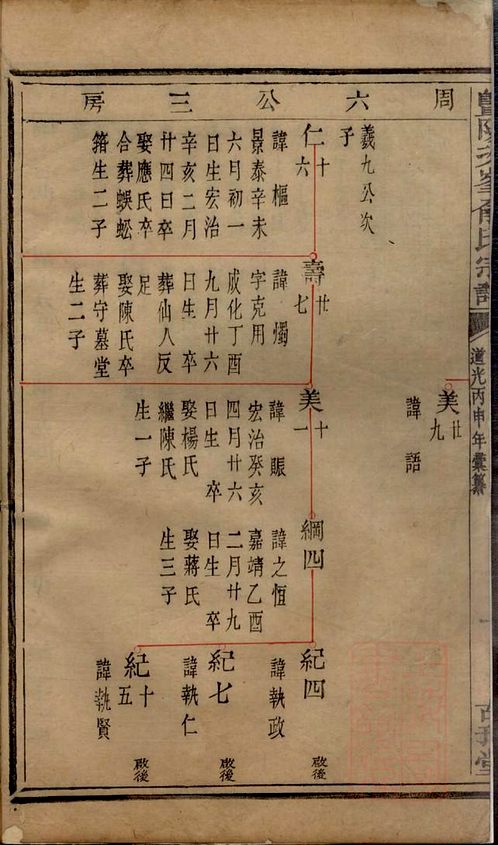 周六公三房
美廿九
諱語
義九公次子
仁十六
諱樞
景泰辛未
六月初一
日生宏治
辛亥二月
廿四日卒
娶應氏卒
合葬蜈蚣
箬生二子
壽廿七
諱燭
字克用
成化丁酉
九月廿六
日生 卒
葬仙人反
足
娶陳氏卒
葬守墓堂
生二子
美十一
諱賬
宏治癸亥
四月廿六
日生 卒
娶楊氏
繼陳氏
生一子
綱四
諱之恒
嘉靖乙酉
二月廿九
日生 卒
娶蔣氏
生三子
紀四
諱執政
啟後
紀七
諱執仁
啟後
紀十五
諱執賢
啟後
道光丙申年彙纂